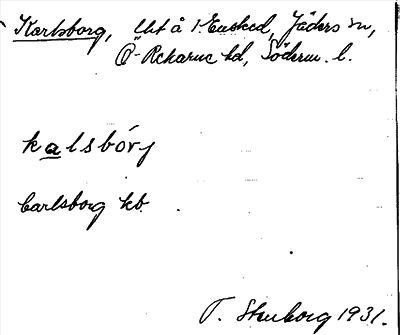 Karlsborg, lht å 1 Eksked, Jäders sn,
Ö-Rekarne hd, Söderm. l.
kalsbórj
Carlsborg kb.
T. Stenborg 1931.